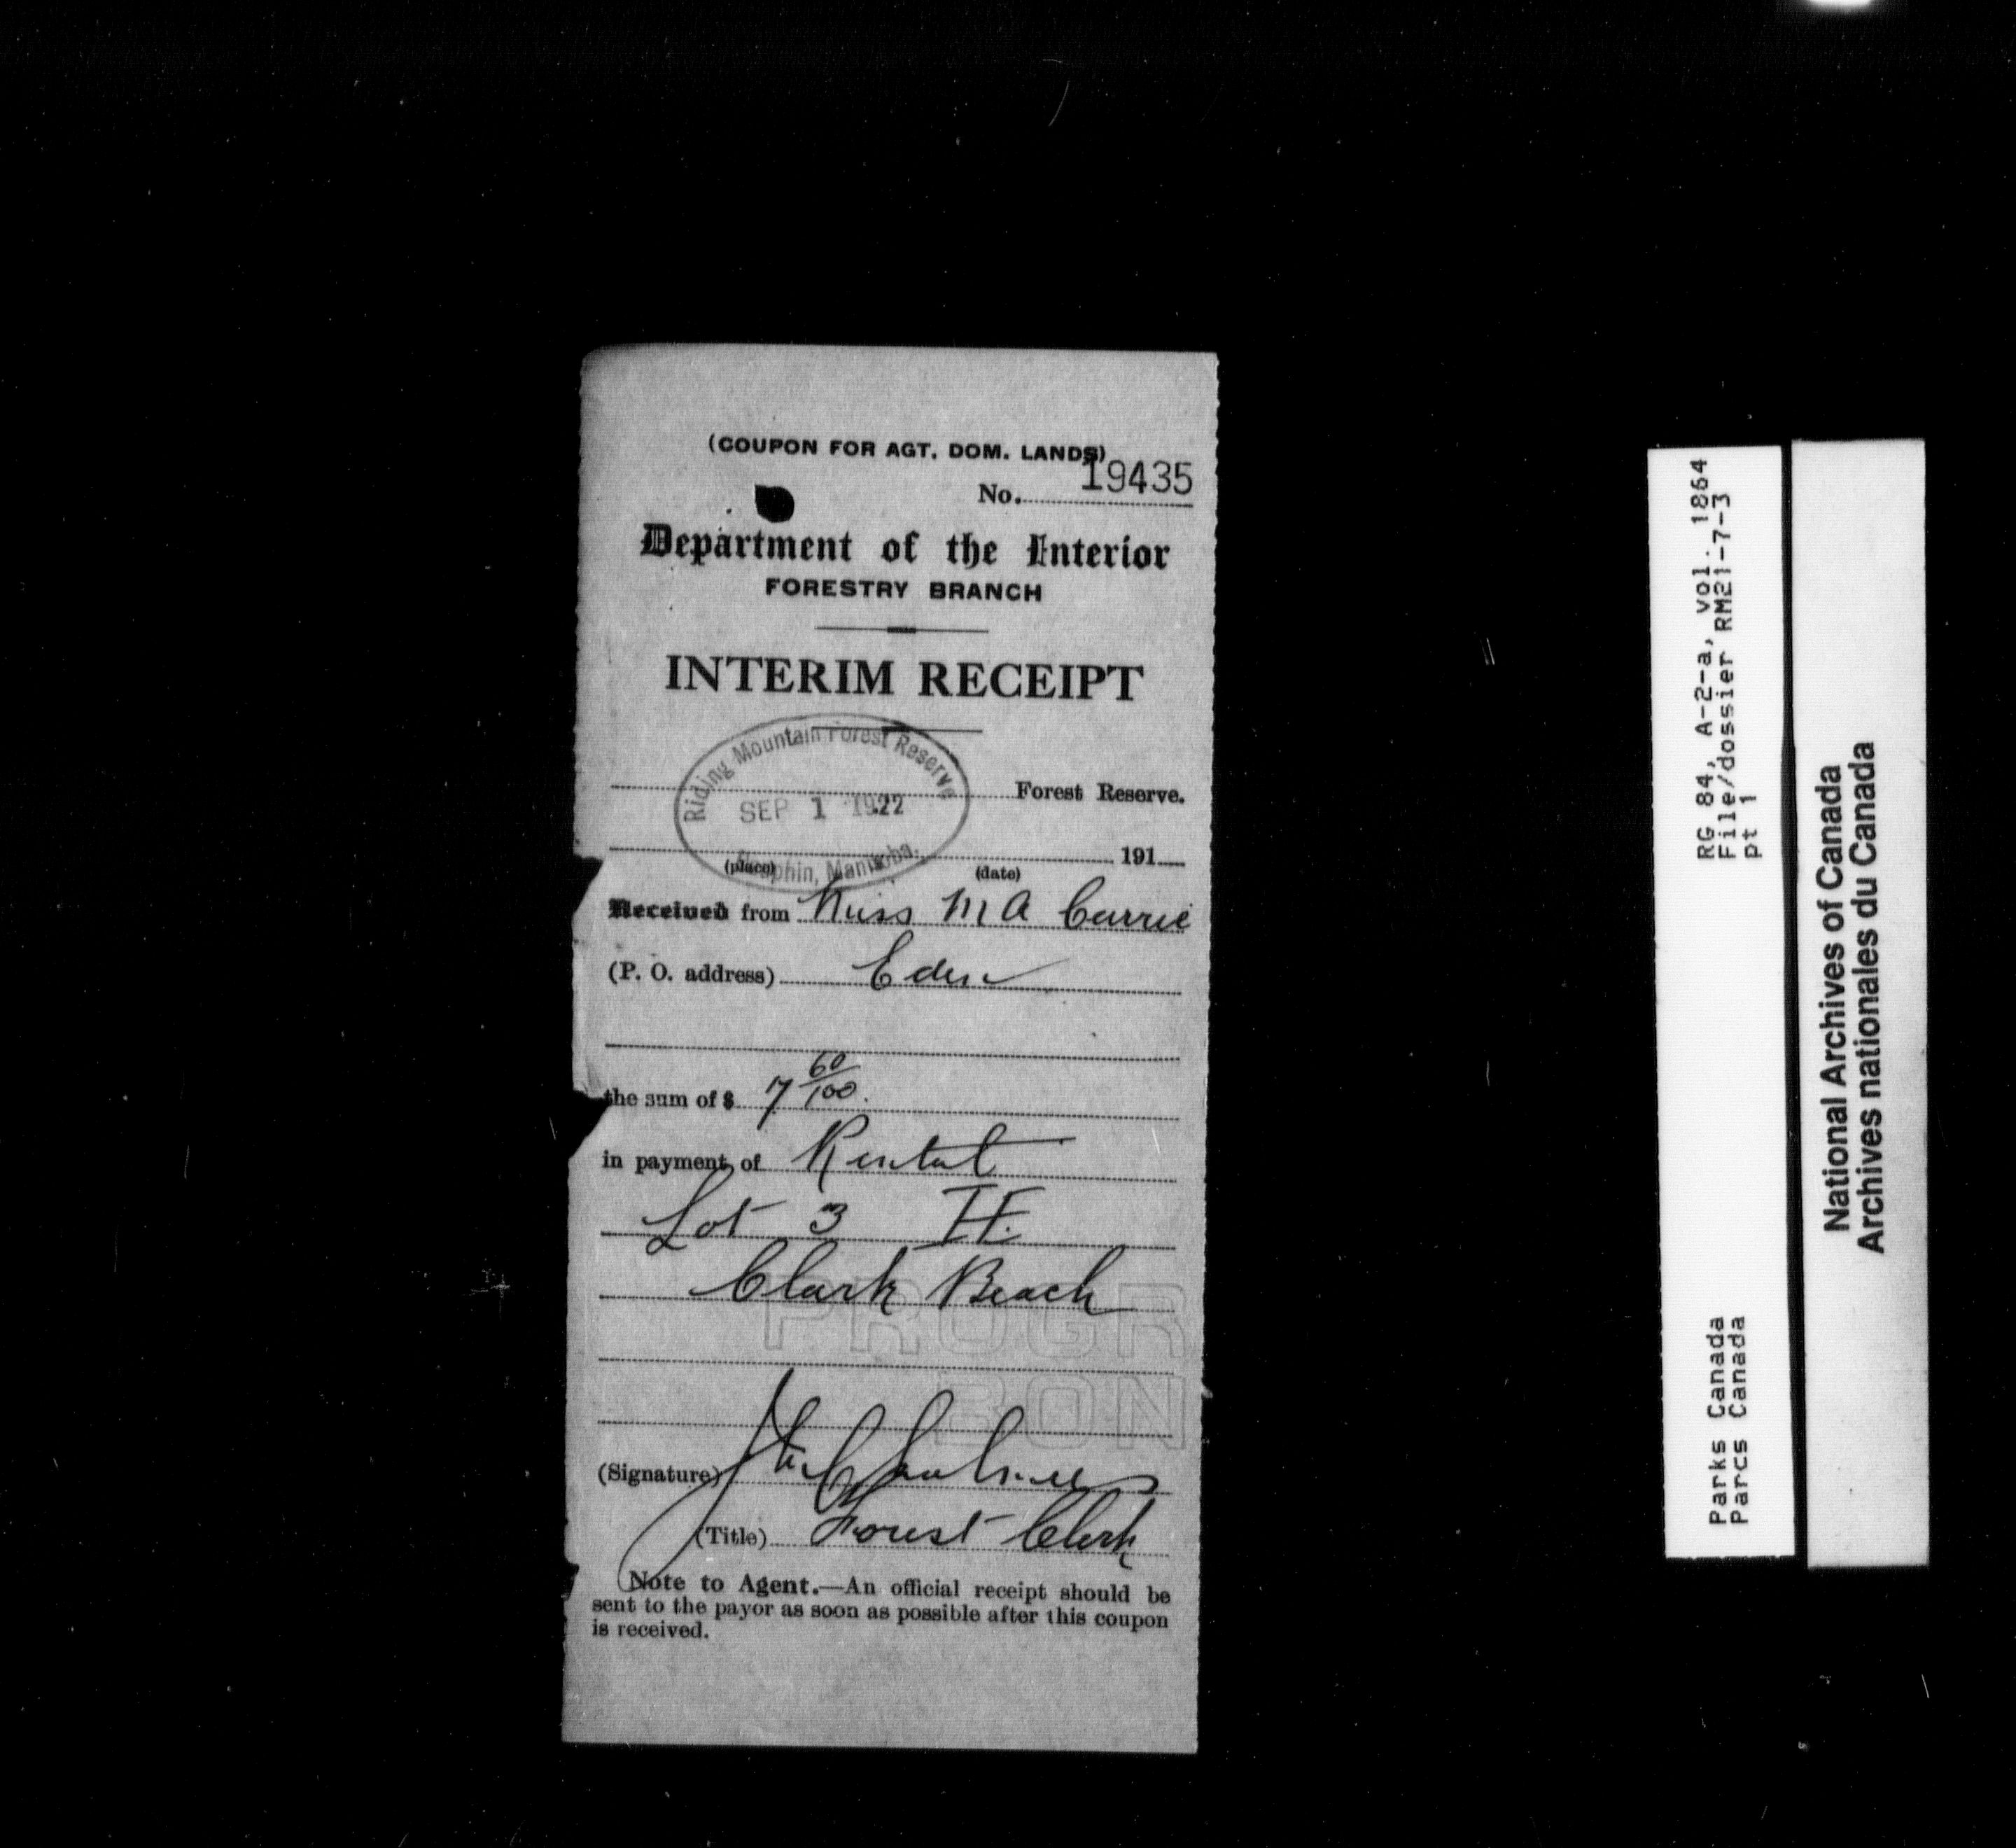 (COUPON FOR AGT. DOM. LANDS)
No. 19435
Department of the Interior
FORESTRY BRANCH
INTERIM RECEIPT
Riding Mountain Forest Reserve
Forest Reserve.
SEP 1 1922
191
(place) (date)
Dauphin, Manitoba.
Received from Miss M A Currie
(P. O. address) Eden
the sum of $ 7 60/100.
in payment of Rental
Lot 3
Clark Beach
PROGR
BON
(Signature)
(Title) Forest Clerk
Note to Agent.—An official receipt should be
sent to the payor as soon as possible after this coupon
is received.
RG 84, A-2-a, vol. 1864
File/dossier RM21-7-3
pt 1
Parks Canada
Parcs Canada
National Archives of Canada
Archives nationales du Canada